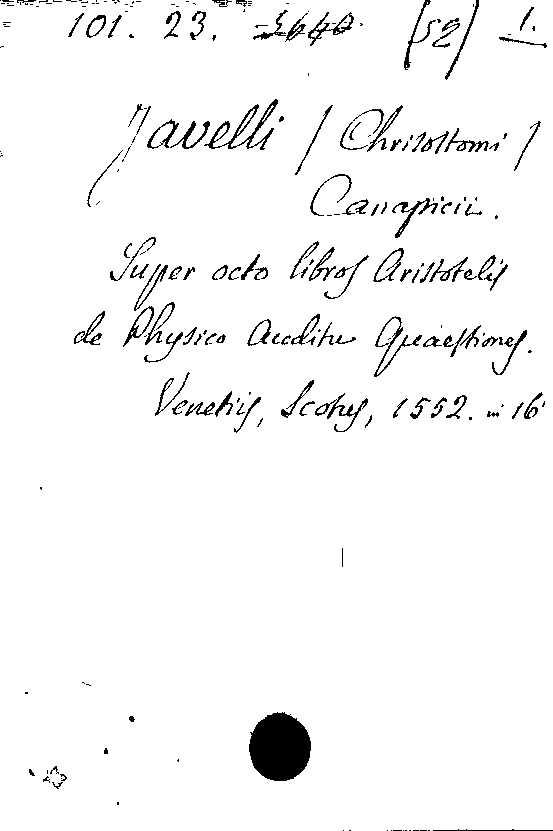 101. 23. 3640. [52] 1.
Javelli / Chrisostomi /
Canapicii.
Super octo libros Aristotelis
de Physico Auditu Quaestiones.
Venetiis, Scotus, 1552. in 16°